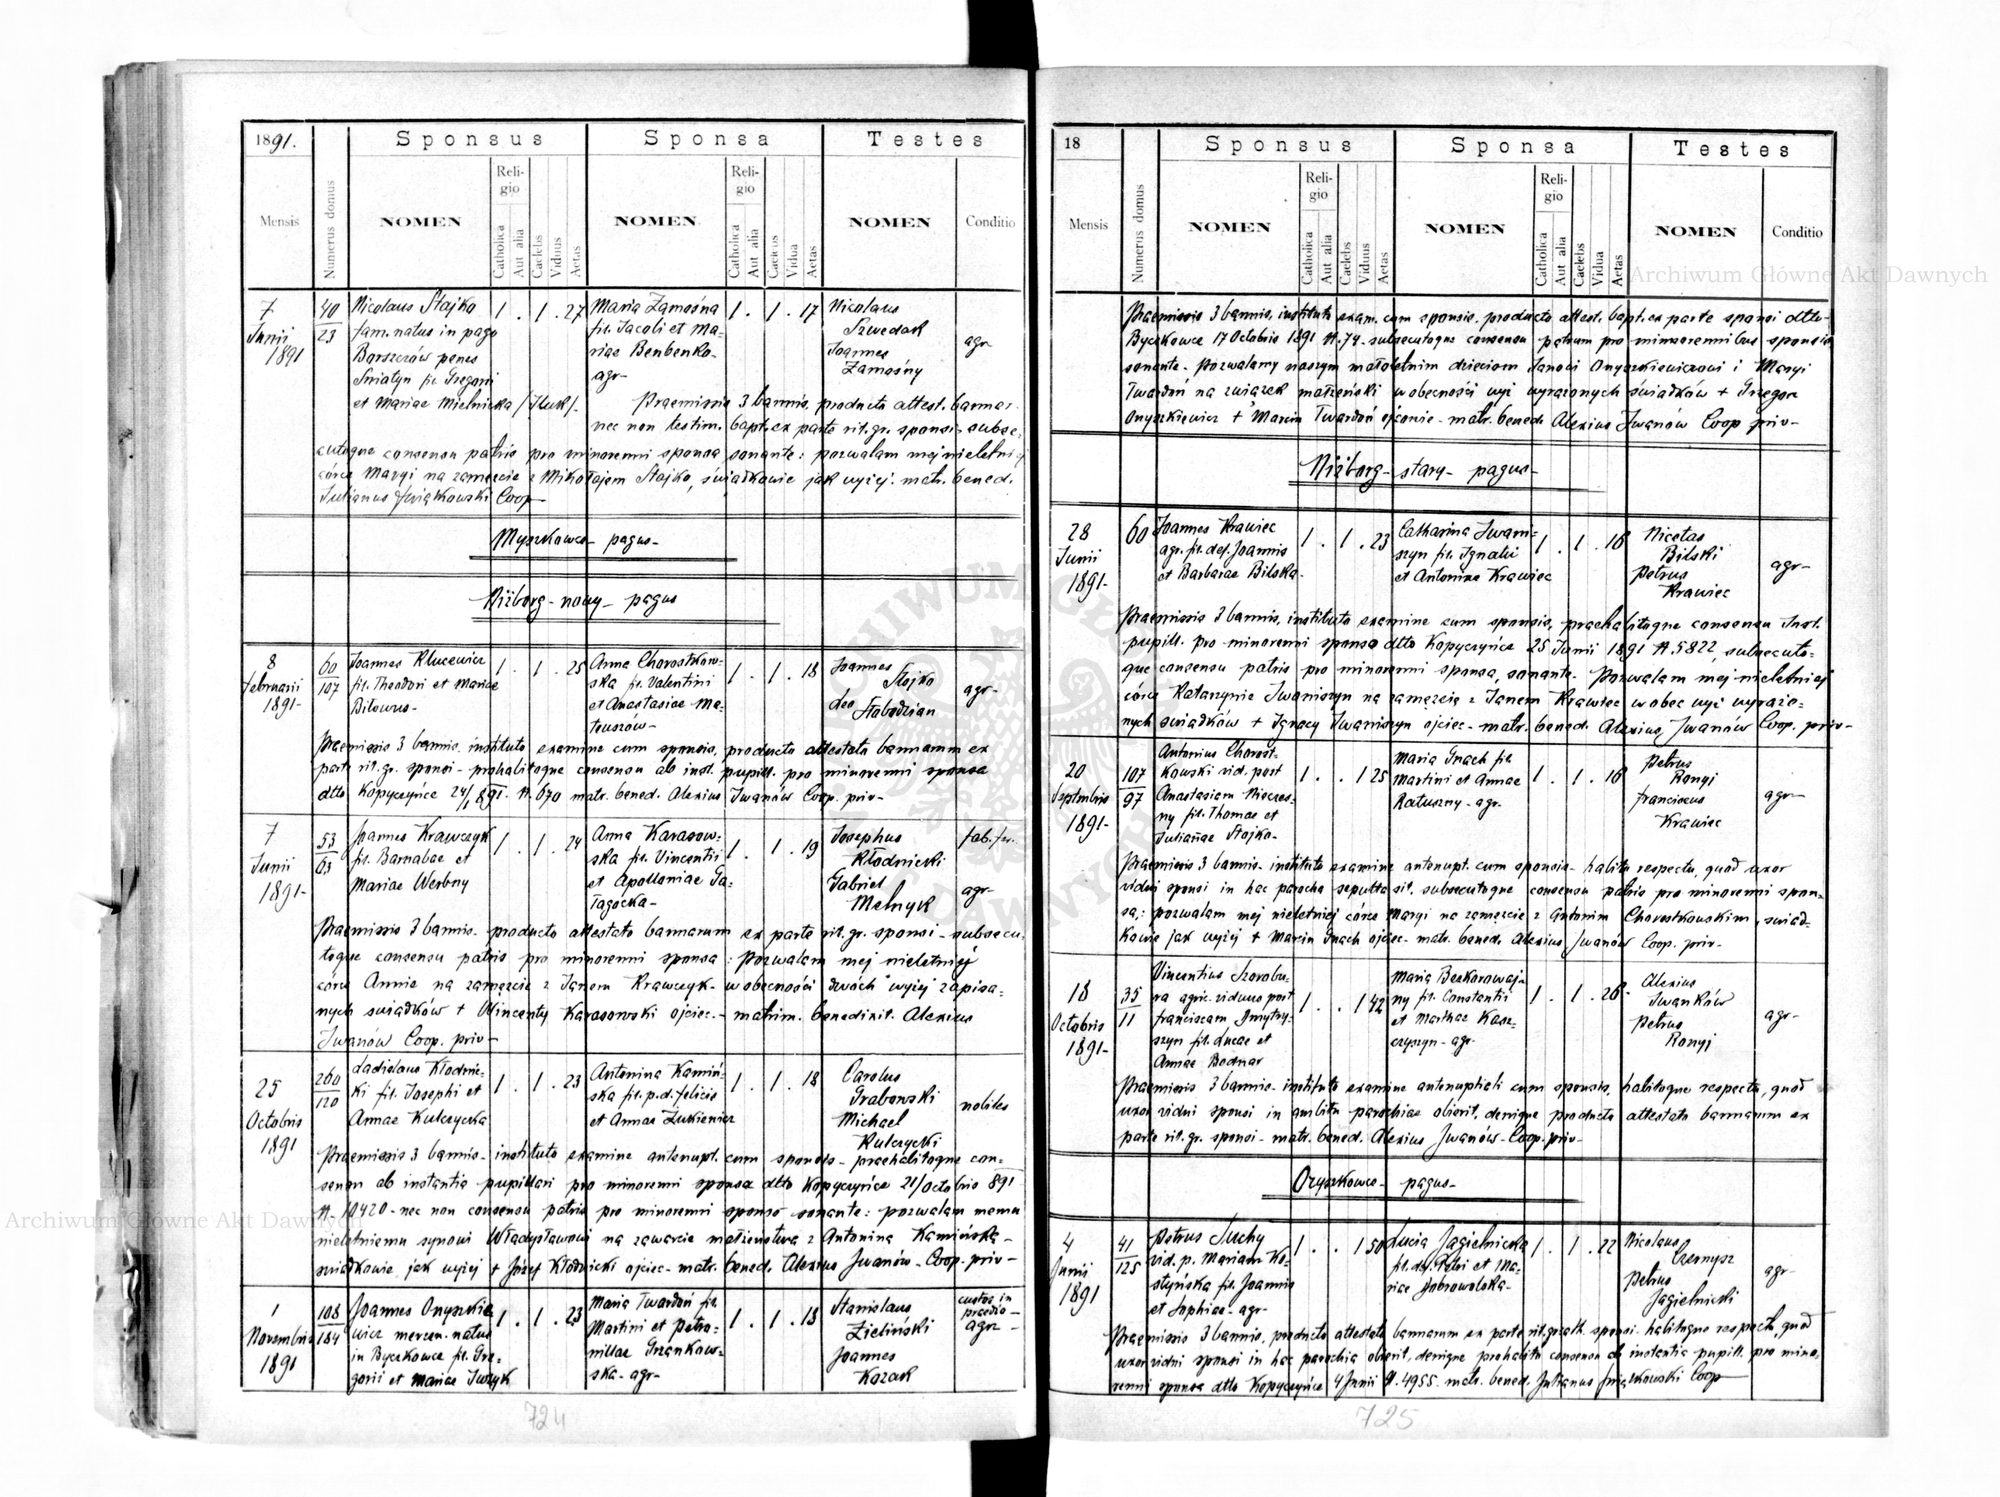 1891.
Sponsus
Sponsa
Testes
Mensis
Numerus domus
NOMEN
Religio
Catholica
Aut alia
Caelebs
Viduus
Aetas
NOMEN
Religio
Catholica
Aut alia
Caelebs
Vidua
Aetas
NOMEN
Conditio
7 Junii 1891
40/23
Nicolaus Stajko
fam. natus in pago
Borszczów penes
Sniatyn fil. Gregorii
et Mariae Mielnicka /Huk/.
1 . 1 . 27
Maria Zamośna
fil. Jacobi et Ma-
riae Benbenko-
agr-
1 . 1 . 17
Nicolaus
Szwedak
Joannes
Zamośny
agr
Praemissis 3 bannis, producto attest. bannor.
nec non testim. bapt. ex parte rit. gr. sponsi- subse-
cutoque consensu patris pro minorenni sponsa sonante: pozwalam mej nieletniej
córce Maryi na zamęzcie z Mikołajem Stajko, świadkowie jak wyżej. matr. bened.
Julianus Świątkowski Coop-
Myszkowce- pagus-
Niżborg- nowy- pagus
8 februarii 1891-
60/107
Joannes Klucewicz
fil. Theodori et Mariae
Bilowus-
1 . 1 . 25
Anna Chorostkow-
ska fil. Valentini
et Anastasiae Ma-
teuszów-
1 . 1 . 18
Joannes
Stojko
Leo Słabodzian
agr-
Praemissis 3 bannis. instituto examine cum sponsis, producto attestato bannorum ex
parte rit. gr. sponsi- prohabitoque consensu ab inst. pupill. pro minorenni sponsa
dtto Kopyczyńce 24/1 891. N. 670 matr. bened. Alexius Iwanów Coop. priv-
7 Junii 1891-
53/63
Joannes Krawczyk
fil. Barnabae et
Mariae Werbny
1 . 1 . 24
Anna Karasow-
ska fil. Vincentii
et Apolloniae Ga-
łagocka-
1 . 1 . 19
Josephus
Kłodnicki
Gabriel
Melnyk
fab. fer.
agr-
Praemissis 3 bannis. producto attestato bannorum ex parte rit. gr. sponsi- subsecu-
toque consensu patris pro minorenni sponsa: pozwalam mej nieletniej
córce Annie na zamęzcie z Janem Krawczyk- w obecności dwóch wyżej zapisa-
nych swiadków + Wincenty Karasowski ojciec.- matrim. benedixit. Alexius
Iwanów Coop. priv-
25 Octobris 1891
260/120
Ladislaus Kłodnic-
ki fil. Josephi et
Annae Kulczycka
1 . 1 . 23
Antonina Kamiń-
ska fil. p. d. felicis
et Annae Łukiewicz
1 . 1 . 18
Carolus
Grabowski
Michael
Kulczycki
nobiles
Praemissis 3 bannis- instituto examine antenupt. cum sponsis- praehabitoque con-
sensu ab instantia pupillari pro minorenni sponsa dtto Kopyczyńce 21/Octobris 891
N. 10420- nec non consensu patris pro minorenni sponso sonante: pozwalam memu
nieletniemu synowi Władysławowi na zawarcie małżeństwa z Antonina Kamińska-
swiadkowie jak wyżej + Józef Kłodnicki ojciec- matr. bened. Alexius Iwanów- Coop. priv-
1 Novembris 1891
108/184
Joannes Onyszkie-
wicz mercen. natus
in Byczkowce fil. Gre-
gorii et Mariae Juzyk
1 . 1 . 23
Maria Twardoń fil.
Martini et Petro-
nillae Grzankow-
ska- agr-
1 . 1 . 18
Stanislaus
Zieliński
Joannes
Kozak
custos in
praedio-
agr-
724
18
Sponsus
Sponsa
Testes
Mensis
Numerus domus
NOMEN
Religio
Catholica
Aut alia
Caelebs
Viduus
Aetas
NOMEN
Religio
Catholica
Aut alia
Caelebs
Vidua
Aetas
NOMEN
Conditio
Praemissis 3 bannis, instituto exam. cum sponsis, producto attest. bapt. ex parte sponsi dtto-
Byczkowce 17 Octobris 1891 N. 74- subsecutoque consensu patrum pro minorennibus sponsis
sonante- pozwalamy naszym małoletnim dzieciom Janowi Onyszkiewiczowi i Maryi
Twardoń na związek małżeński w obecności wyż wyrażonych świadków + Grzegorz
Onyszkiewicz + Marcin Twardoń ojcowie- matr. bened. Alexius Iwanów Coop priv-
Niżborg- stary- pagus-
28 Junii 1891-
60
Joannes Krawiec
agr. fil. def. Joannis
et Barbarae Bilska.
1 . 1 . 23
Catharina Iwani-
szyn fil. Ignatii
et Antoninae Krawiec
1 . 1 . 16
Nicetas
Bilski
Petrus
Krawiec
agr-
Praemissis 3 bannis, instituto examine cum sponsis, praehabitoque consensu Inst.
pupill. pro minorenni sponsa dtto Kopyczyńce 25 Junii 1891 N. 5822, subsecuto-
que consensu patris pro minorenni sponsa, sonante- Pozwalam mej nieletniej
córce Katarzynie Iwaniszyn na zamęzcie z Janem Krawiec w obec wyż wyrażo-
nych świadków + Ignacy Iwaniszyn ojciec- matr. bened. Alexius Iwanów Coop. priv-
20 Septmbris 1891-
107/97
Antonius Chorost-
kowski vid. post
Anastasiam Nieczes-
ny fil. Thomae et
Julianae Stojko-
1 . . 1 25
Maria Gnach fil.
Martini et Annae
Ratuszny- agr.
1 . 1 . 16
Petrus
Konyj
franciscus
Krawiec
agr-
Praemissis 3 bannis- instituto examine antenupt. cum sponsis- habito respectu, quod uxor
vidui sponsi in hac parocha sepulta sit, subsecutoque consensu patris pro minorenni spon-
sa,: pozwalam mej nieletniej córce Maryi na zamęzcie z Antonim Chorostkowskim, swiad-
kowie jak wyżej + Marcin Gnach ojciec- matr. bened. Alexius Iwanów Coop. priv-
18 Octobris 1891-
35/11
Vincentius Szorobu-
ra agric. viduus post
franciscam Dmytry-
szyn fil. Lucae et
Annae Bodnar
1 . . 1 42
Maria Bezkorowaj-
ny fil. Constantii
et Marthae Kasz-
czyszyn- agr-
1 . 1 . 26-
Alexius
Iwanków
Petrus
Konyj
agr-
Praemissis 3 bannis- instituto examine antenuptieli cum sponsis, habitoque respectu, quod
uxor vidui sponsi in ambitu parochiae obierit, denique producto attestato bannorum ex
parte rit. gr. sponsi- matr. bened. Alexius Iwanów- Coop. priv-
Oryszkowce- pagus-
4 Junii 1891
41/125
Petrus Suchy
vid. p. Mariam Ko-
styńska fil. Joannis
et Sophiae- agr-
1 . . 1 50
Lucia Jagielnicka
fil. def. Petri et Ma-
riae Dobrowolska-
1 . 1 . 22
Nicolaus
Czernysz
Petrus
Jagielnicki
agr-
Praemissis 3 bannis, producto attestato bannorum ex parte rit. graeth. sponsi- habitoque respectu, quod
uxor vidui sponsi in hac parochia obierit, denique prohabito consensu ab instantia pupill. pro mino-
renni sponsa dtto Kopyczyńce 4 Junii N. 4955. matr. bened. Julianus Świątkowski Coop-
725
Archiwum Główne Akt Dawnych
Archiwum Główne Akt Dawnych
ARCHIWUM GŁÓWNE AKT DAWNYCH